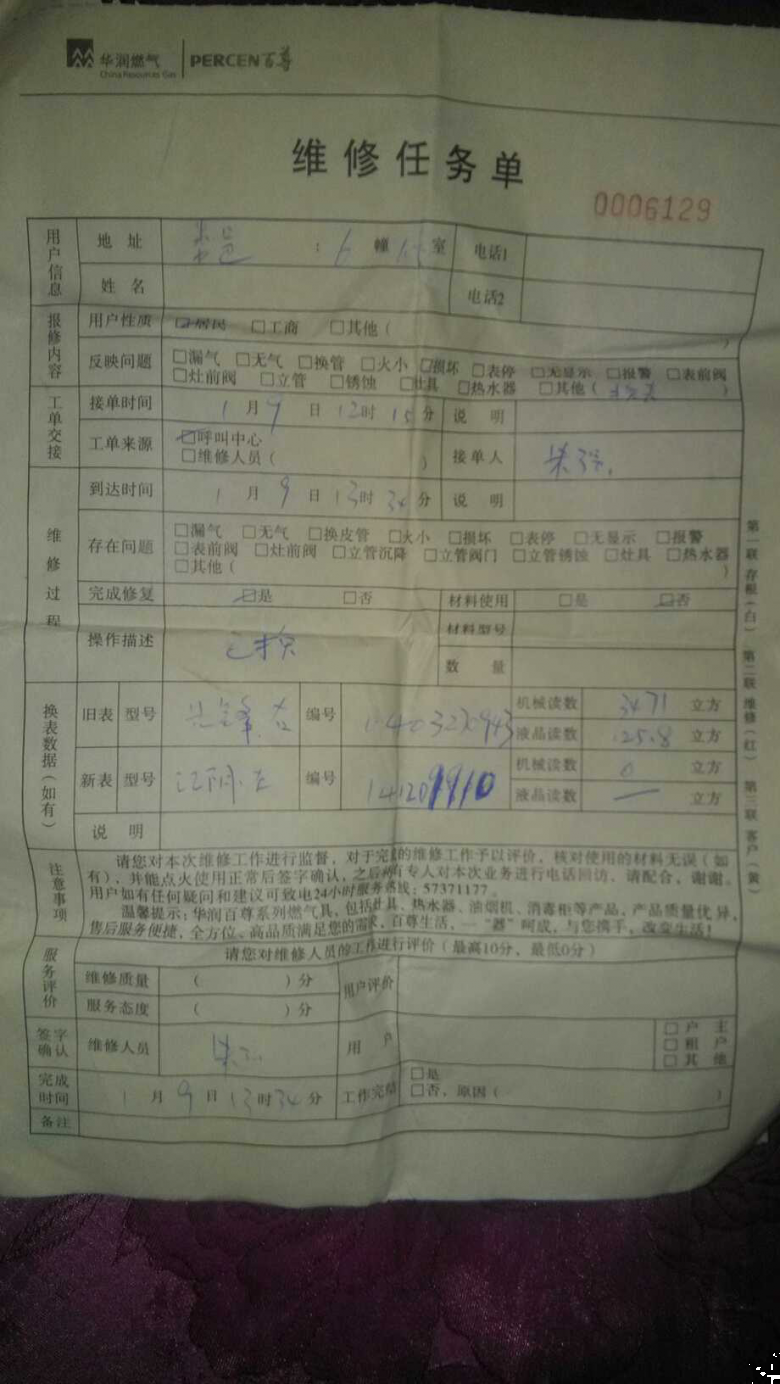 华润燃气 PERCEN百尊
China Resources Gas
维修任务单
0006129
用户信息 地址 : 6 幢 室 电话1
姓名 电话2
报修内容 用户性质 ☑居民 □工商 □其他(
)
反映问题 □漏气 □无气 □换管 □火小 ☑损坏 □表停 □无显示 □报警 □表前阀
□灶前阀 □立管 □锈蚀 □灶具 □热水器 □其他( )
工单交接 接单时间 1 月 9 日 12时 15分 说明
工单来源 ☑呼叫中心
□维修人员( ) 接单人
维修过程 到达时间 1 月 9 日 13时 34分 说明
存在问题 □漏气 □无气 □换皮管 □火小 □损坏 □表停 □无显示 □报警
□表前阀 □灶前阀 □立管沉降 □立管阀门 □立管锈蚀 □灶具 □热水器
□其他( )
完成修复 ☑是 □否 材料使用 □是 ☑否
操作描述 已换 材料型号
数量
换表数据(如有) 旧表 型号 编号 机械读数 3471 立方
液晶读数 立方
新表 型号 编号 141209910 机械读数 0 立方
液晶读数 — 立方
说明
注意事项 请您对本次维修工作进行监督,对于完成的维修工作予以评价,核对使用的材料无误(如
有),并能点火使用正常后签字确认,之后两有专人对本次业务进行电话回访,请配合,谢谢。
用户如有任何疑问和建议可致电24小时服务热线:57371177。
温馨提示:华润百尊系列燃气具,包括灶具、热水器、油烟机、消毒柜等产品,产品质量优异,
售后服务便捷,全方位、高品质满足您的需求,百尊生活,一“器”呵成,与您携手,改变生活!
服务评价 请您对维修人员的工作进行评价(最高10分,最低0分)
维修质量 ( )分 用户评价
服务态度 ( )分
签字确认 维修人员 用户 □户主
□租户
□其他
完成时间 1 月 9 日 13时34分 工作完结 □是
□否,原因( )
备注
第一联 存根(白) 第二联 维修(红) 第三联 客户(黄)